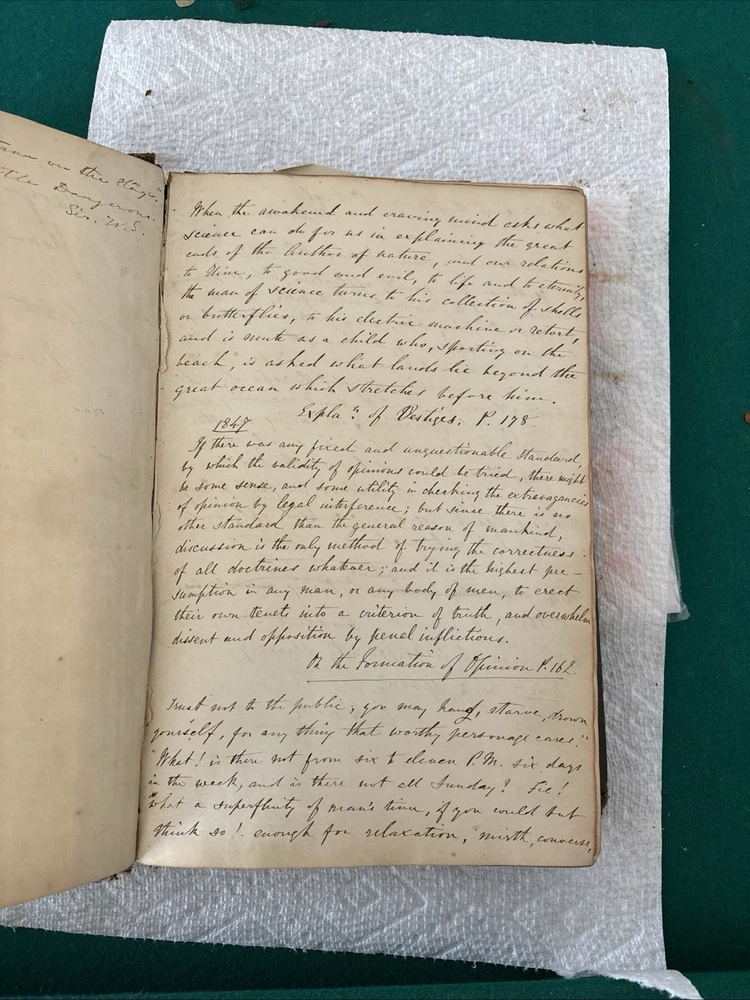 on the Stage.
Dangerous.
Sir. W. S.
When the awakened and craving mind asks what
science can do for us in explaining the great
ends of the Author of nature, and our relations
to Him, to good and evil, to life and to eternity,
the man of science turns to his collection of shells
or butterflies, to his electric machine or retort,
and is mute as a child who, sporting on the
beach, is asked what lands lie beyond the
great ocean which stretches before him.
Expla.n of Vestiges. P. 178.
1847
If there was any fixed and unquestionable standard,
by which the validity of opinions could be tried, there might
be some sense, and some utility in checking the extravagancies
of opinion by legal interference; but since there is no
other standard than the general reason of mankind,
discussion is the only method of trying the correctness
of all doctrines whatever; and it is the highest pre-
sumption in any man, or any body of men, to erect
their own tenets into a criterion of truth, and overwhelm
dissent and opposition by penal inflictions.
On the Formation of Opinion P. 162.
Trust not to the public; you may hang, starve, drown
yourself, for any thing that worthy personage cares."
"What! is there not from six to eleven P.M. six days
in the week, and is there not all Sunday? Fie!
what a superfluity of man's time, if you could but
think so! enough for relaxation, mirth, converse,